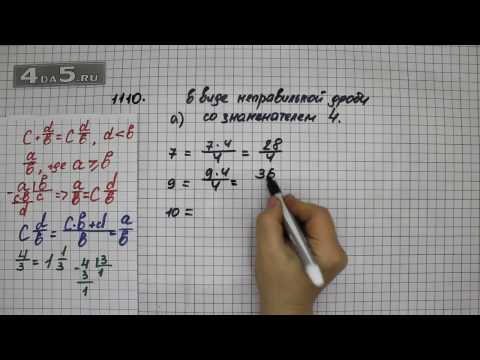 4DA5.RU
1110. В виде неправильной дроби
а) со знаменателем 4.
7 = 7·4/4 = 28/4
9 = 9·4/4 = 36
10 =
c + d/b = c d/b, d < b
a/b, где a ≥ b
- a | b
cb | c
d
=> a/b = c d/b
c d/b = (c·b+d)/b = a/b
4/3 = 1 1/3
- 4 | 3
3 | 1
1